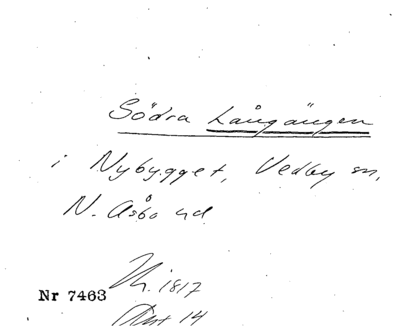 Södra Långängen
i Nybygget, Vedby sn,
N. Åsbo hd
1817
Nr 7463
14